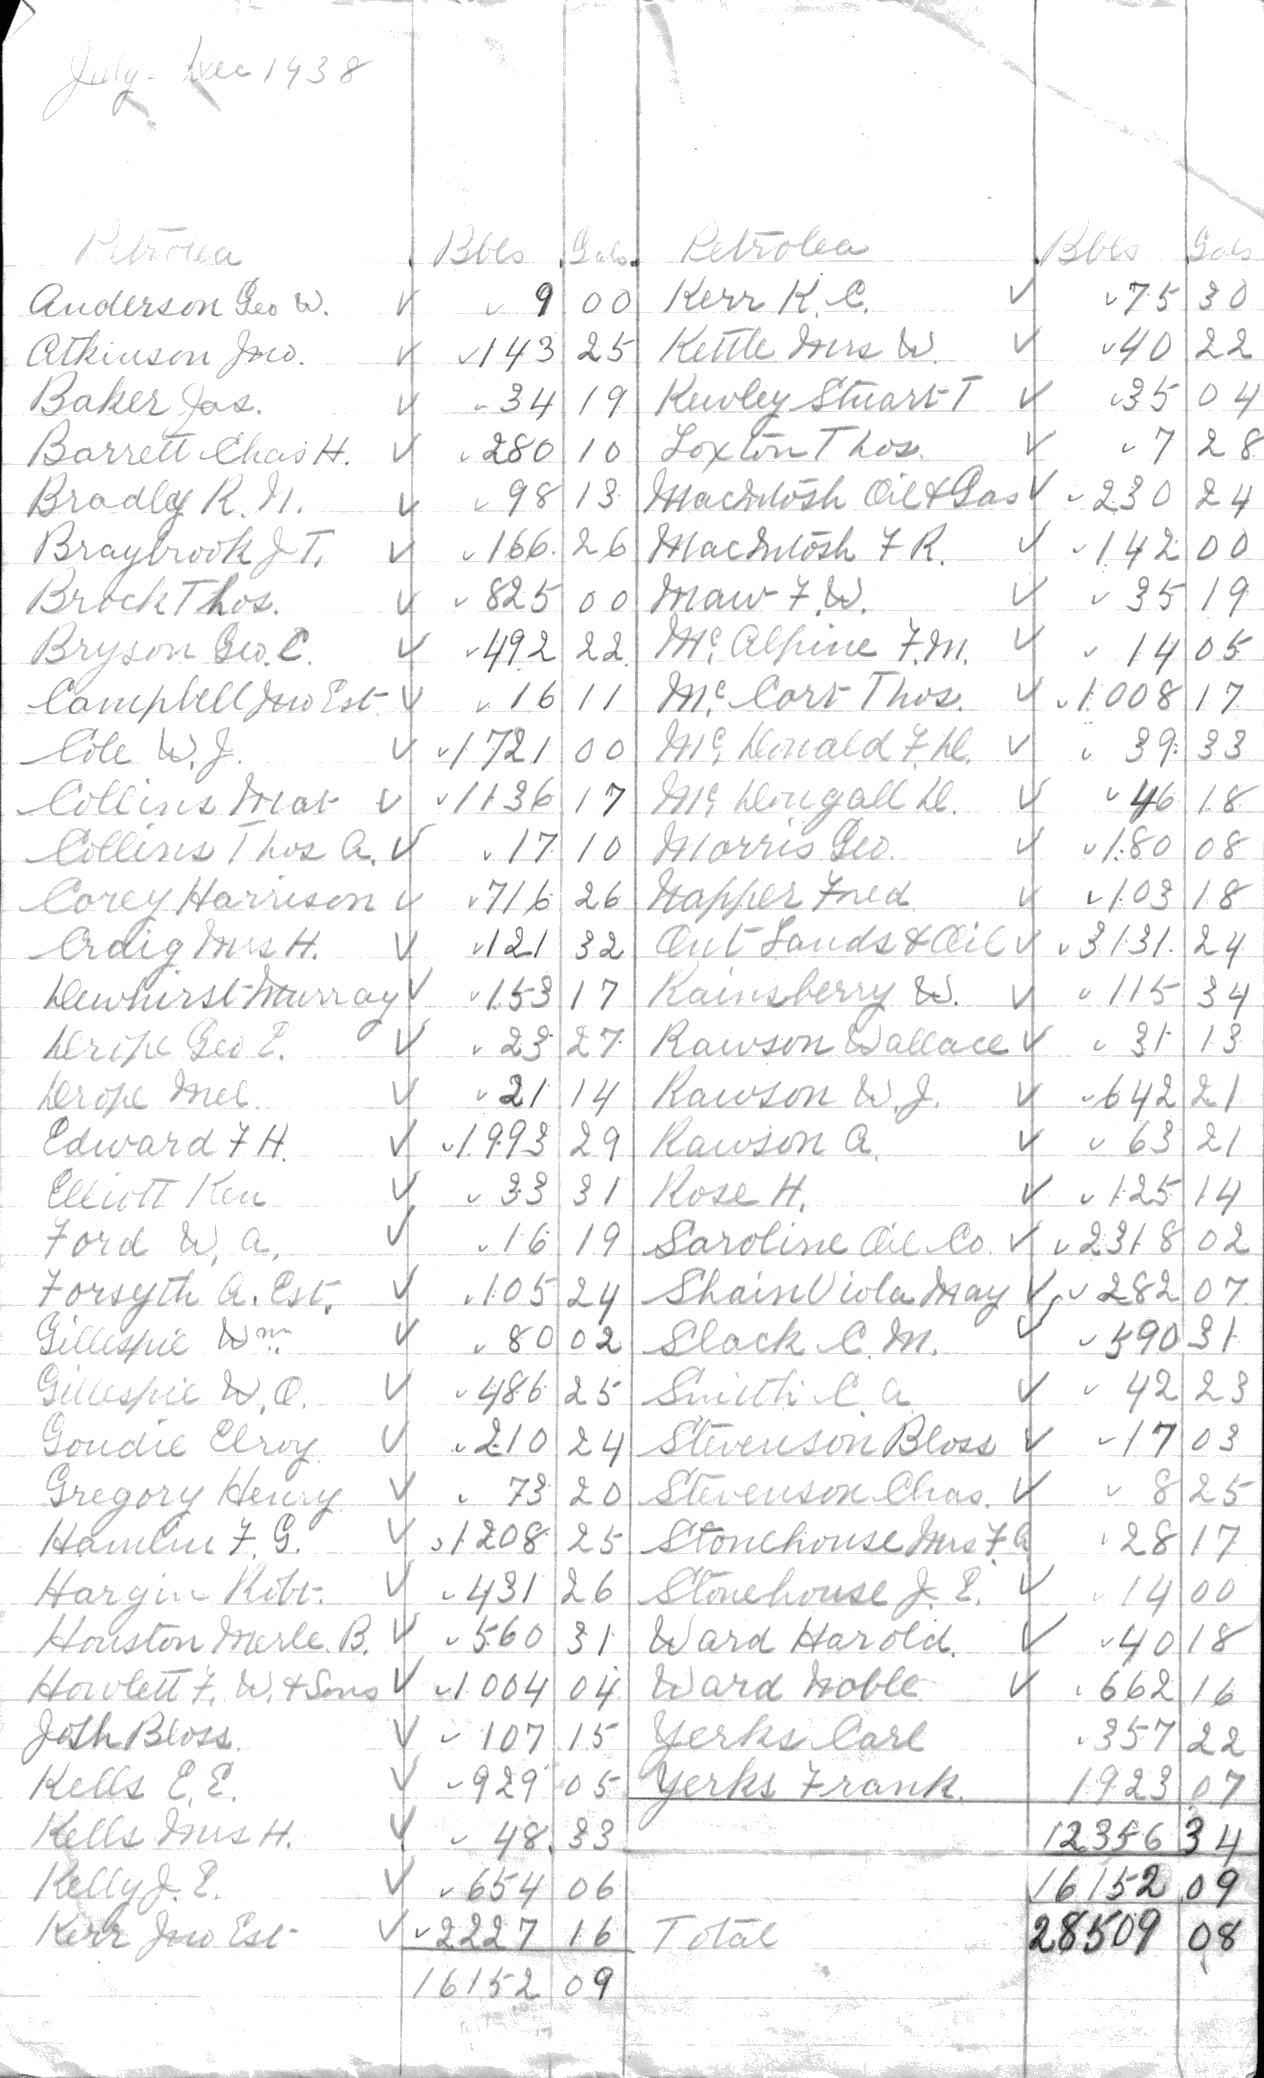 July - Dec 1938
Petrolea Bbls Gals.
Anderson Geo W. ✓ ✓ 9 00
Atkinson Jno. ✓ ✓143 25
Baker Jas. ✓ ✓34 19
Barrett Chas H. ✓ ✓280 10
Bradley R. N. ✓ ✓98 13
Braybrook J T. ✓ ✓166 26
Brock Thos. ✓ ✓825 00
Bryson Geo. C. ✓ ✓492 22
Campbell Jno Est ✓ ✓16 11
Cole W. J. ✓ ✓1721 00
Collins Mat ✓ ✓1136 17
Collins Thos A. ✓ ✓17 10
Corey Harrison ✓ ✓716 26
Craig Mrs H. ✓ ✓121 32
Dewhirst Murray ✓ ✓153 17
Drope Geo E. ✓ ✓23 27
Drope Mel. ✓ ✓21 14
Edward F H. ✓ ✓1993 29
Elliott Ken ✓ ✓33 31
Ford W. A. ✓ ✓16 19
Forsyth A. Est. ✓ ✓105 24
Gillespie Wm ✓ ✓80 02
Gillespie W. O. ✓ ✓486 25
Goudie Elroy ✓ ✓210 24
Gregory Henry ✓ ✓73 20
Hamlin F. G. ✓ ✓1208 25
Hargin Robt. ✓ ✓431 26
Houston Merle. B. ✓ ✓560 31
Howlett F. W. & Sons ✓ ✓1004 04
Josh Bloss. ✓ ✓107 15
Kells E. E. ✓ ✓929 05
Kells Mrs H. ✓ ✓48 33
Kelly J. E. ✓ ✓654 06
Kerr Jno Est ✓ ✓2227 16
16152 09
Petrolea Bbls Gals
Kerr K. C. ✓ ✓75 30
Kettle Mrs W. ✓ ✓40 22
Kewley Stuart T ✓ ✓35 04
Loxton Thos. ✓ ✓7 28
MacIntosh Oil & Gas ✓ ✓230 24
MacIntosh F R. ✓ ✓142 00
Maw F. W. ✓ ✓35 19
Mc. Alpine F. M. ✓ ✓14 05
Mc. Cort Thos. ✓ ✓1008 17
Mc. Donald F. D. ✓ ✓39 33
Mc. Dougall D. ✓ ✓46 18
Morris Geo. ✓ ✓180 08
Napper Fred ✓ ✓103 18
Ont Lands & Oil ✓ ✓3131 24
Rainsberry W. ✓ ✓115 34
Rawson Wallace ✓ ✓31 13
Rawson W. J. ✓ ✓642 21
Rawson A. ✓ ✓63 21
Rose H. ✓ ✓125 14
Saroline Oil Co. ✓ ✓2318 02
Shain Viola May ✓ ✓282 07
Slack C. M. ✓ ✓590 31
Smith C. A ✓ ✓42 23
Stevenson Bloss ✓ ✓17 03
Stevenson Chas. ✓ ✓8 25
Stonehouse Mrs F. A ✓28 17
Stonehouse J. E. ✓ ✓14 00
Ward Harold. ✓ ✓40 18
Ward Noble ✓ ✓662 16
Yerks Carl ✓357 22
Yerks Frank. 1923 07
12356 34
16152 09
Total 28509 08